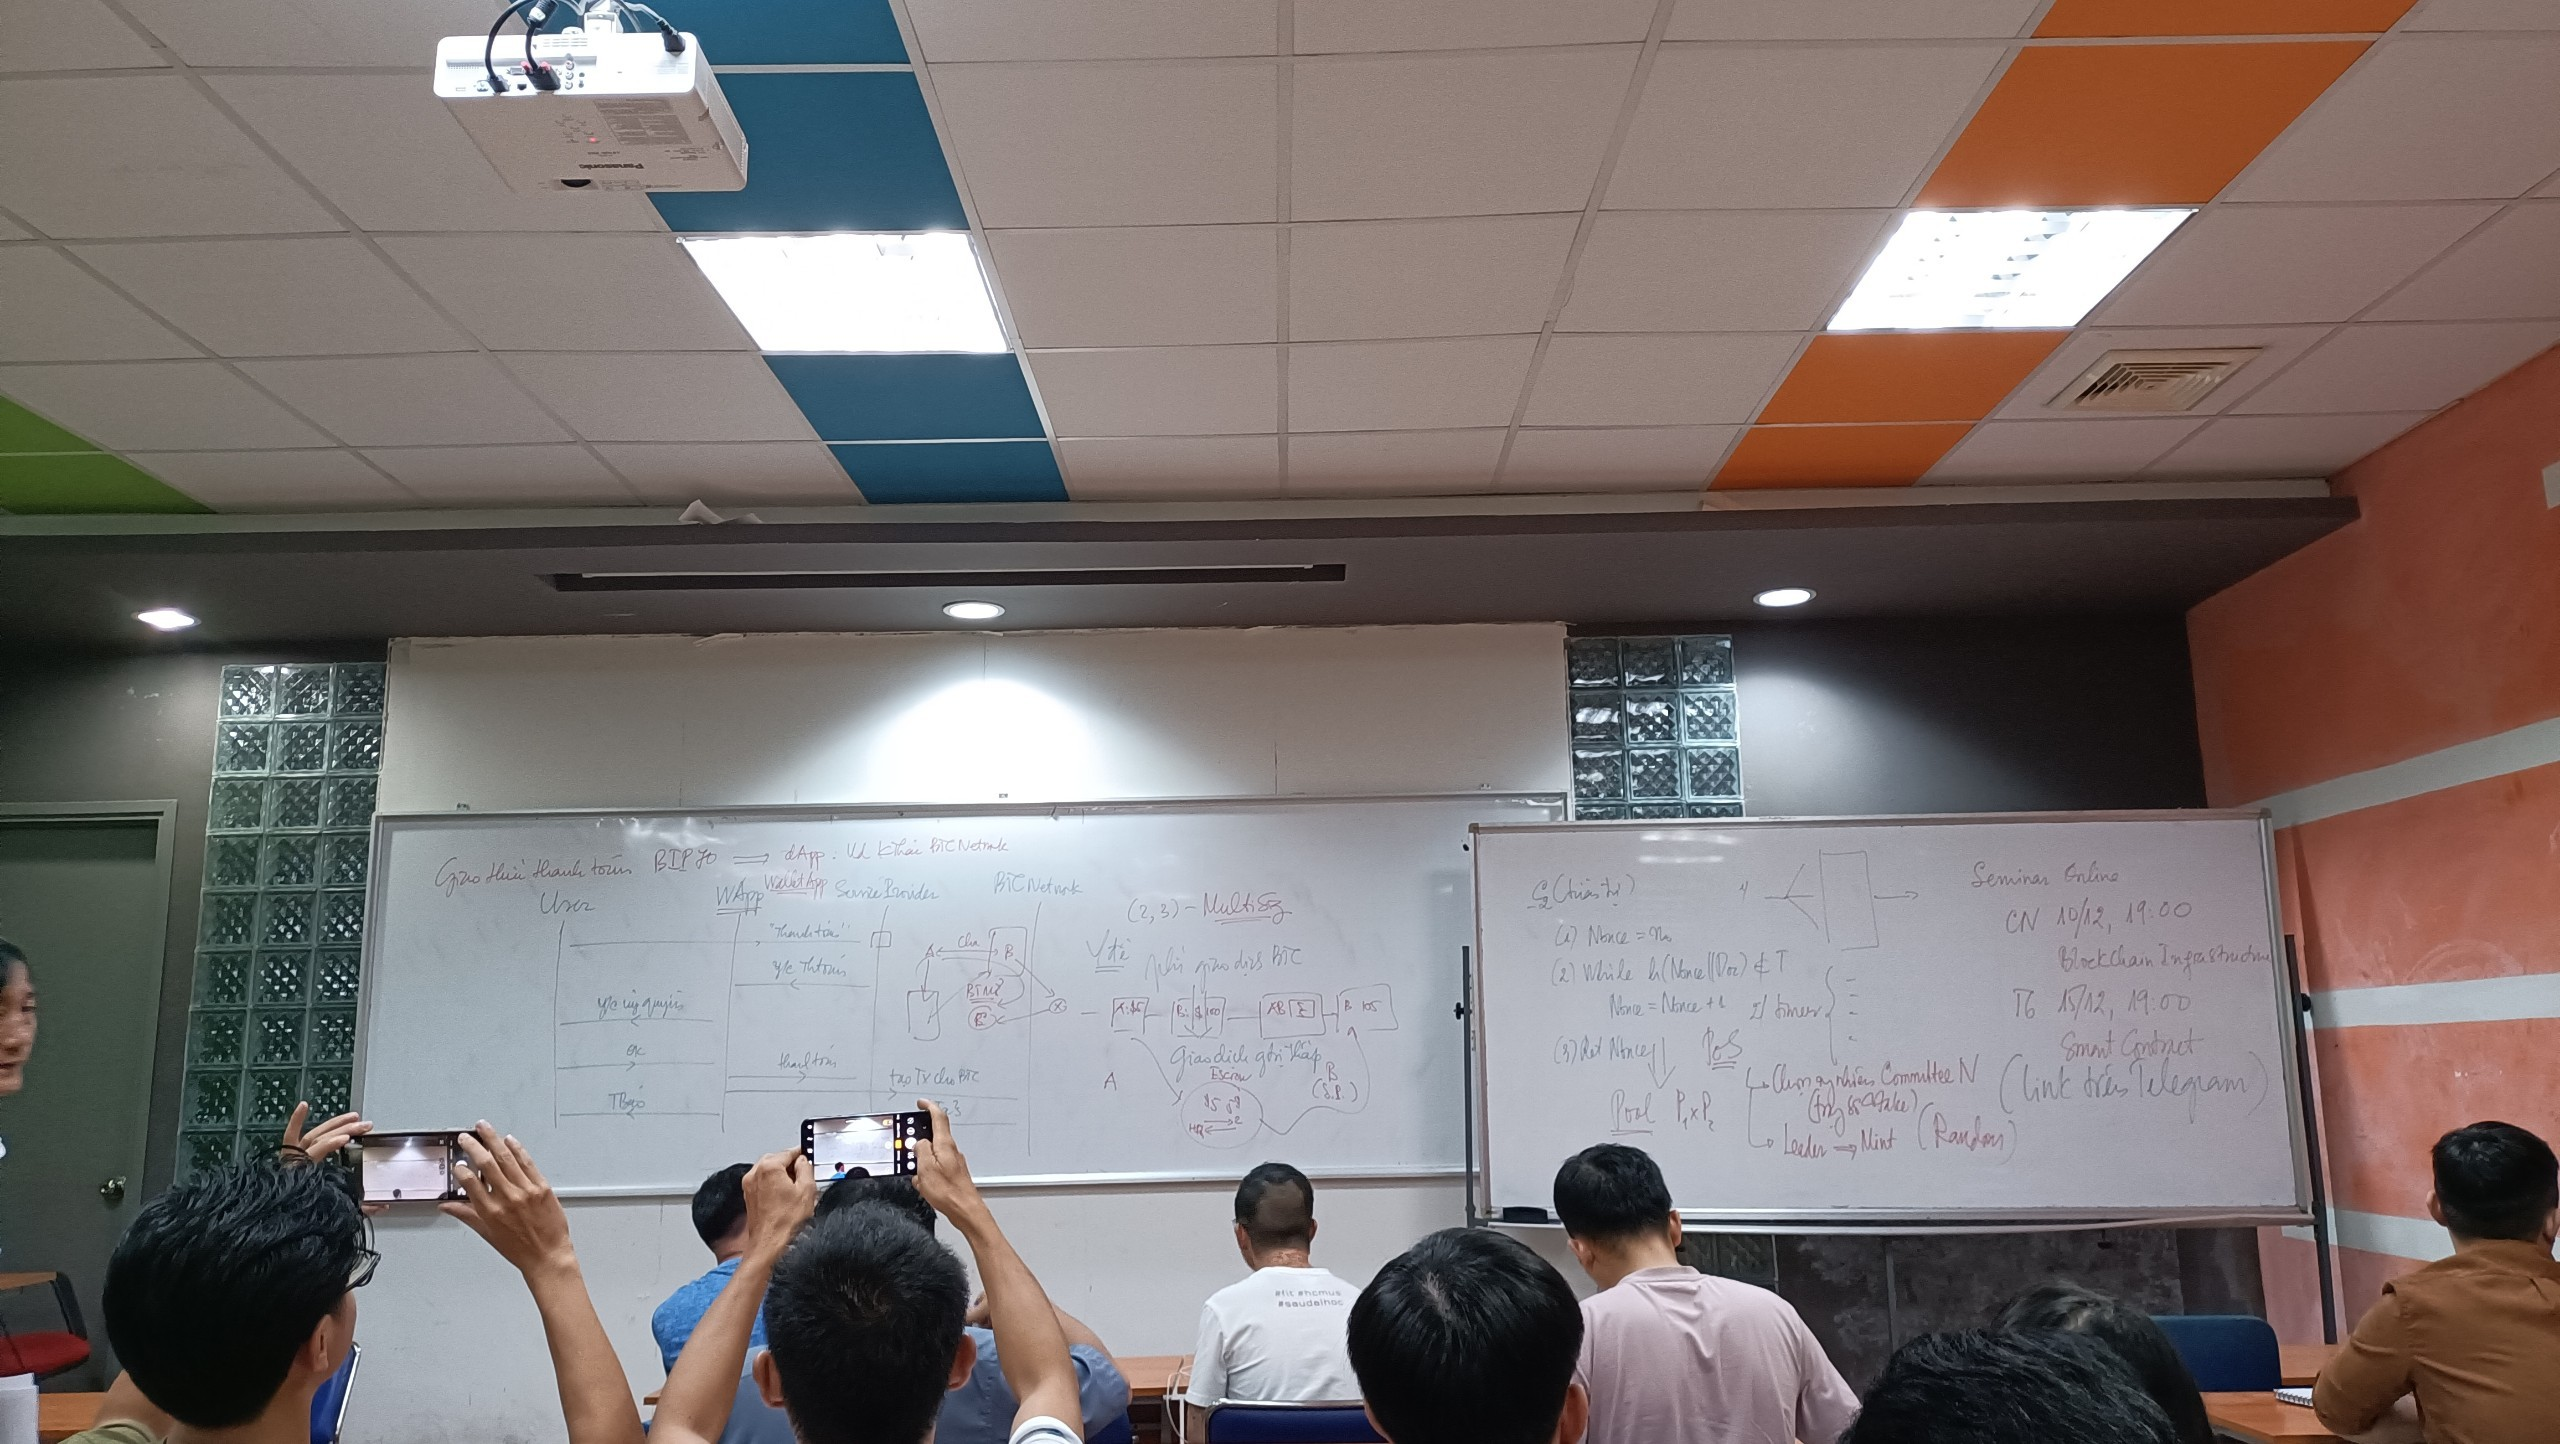 Panasonic
Giao thức thanh toán BIP 70 ⟹ dApp : Vd khai thác BTC Network
User
WApp
Wallet App
Service Provider
BTC Network
"Thanh toán"
y/c Th toán
y/c ủy quyền
OK
thanh toán
tạo Tx cho BTC
TBáo
A
B
(2,3) - MultiSig
Vđề
phí giao dịch BTC
B: $ 100
AB Σ
B 105
Giao dịch gián tiếp
Escrow
A
B
(S.P.)
(1) Nonce = n₀
(2) While h(Nonce||Doc) ∉ T
Nonce = Nonce + 1
(3) Ret Nonce
Pool P₁ x P₂
1/
2/ timer
PoS
Chọn ng nhiên Committee N
Leader → Mint (Random)
Seminar Online
CN 10/12, 19:00
Blockchain Infrastructure
T6 15/12, 19:00
Smart Contract
(link trên Telegram)
#fit #hcmus
#saudaihoc